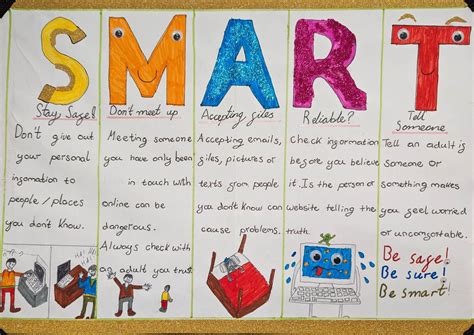 SMART
Stay Sage!
Don't give out
your personal
ingomation to
people / places
you don't know.
HA!
HA!
Don't meet up
Meeting someone
you have only been
in touch with
online can be
dangerous.
Always check with
an adult you trust
Accepting giles
Accepting emails,
giles, pictures or
texts grom people
you don't know can
cause problems.
Reliable?
Check ingormation
begore you believe
it. Is the person or
website telling the
truth.
Tell
Someone
Tell an adult ig
someone or
something makes
you geel worried
or uncomgortable.
Be sage!
Be sure!
Be smart!